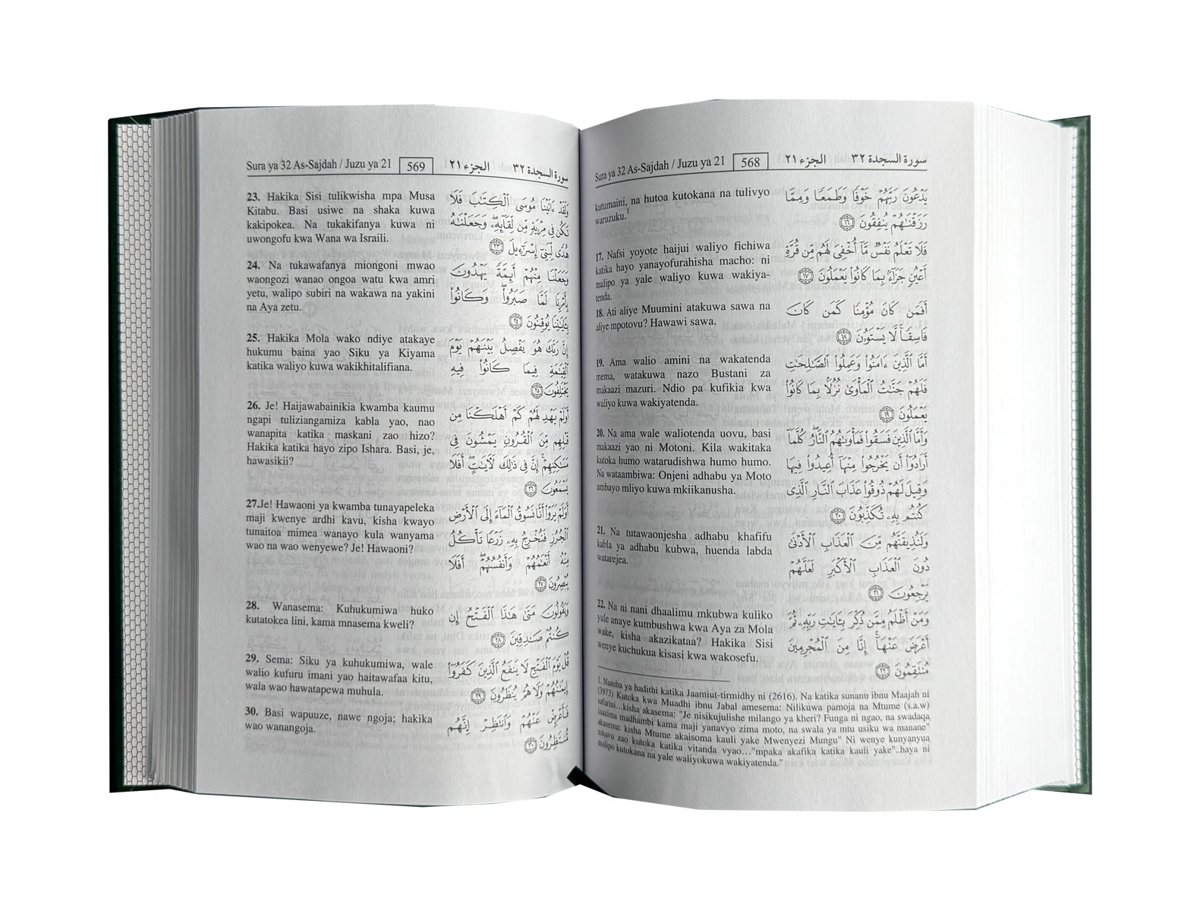 Sura ya 32 As-Sajdah / Juzu ya 21 568 الجزء ٢١ سورة السجدة ٣٢
kutumaini, na hutoa kutokana na tulivyo
waruzuku.1
17. Nafsi yoyote haijui waliyo fichiwa
katika hayo yanayofurahisha macho: ni
malipo ya yale waliyo kuwa wakiya-
tenda.
18. Ati aliye Muumini atakuwa sawa na
aliye mpotovu? Hawawi sawa.
19. Ama walio amini na wakatenda
mema, watakuwa nazo Bustani za
makaazi mazuri. Ndio pa kufikia kwa
waliyo kuwa wakiyatenda.
20. Na ama wale waliotenda uovu, basi
makaazi yao ni Motoni. Kila wakitaka
kutoka humo watarudishwa humo humo.
Na wataambiwa: Onjeni adhabu ya Moto
ambayo mliyo kuwa mkiikanusha.
21. Na tutawaonjesha adhabu khafifu
kabla ya adhabu kubwa, huenda labda
watarejea.
22. Na ni nani dhaalimu mkubwa kuliko
yale anaye kumbushwa kwa Aya za Mola
wake, kisha akazikataa? Hakika Sisi
wenye kuchukua kisasi kwa wakosefu.
يَدْعُونَ رَبَّهُمْ خَوْفًا وَطَمَعًا وَمِمَّا
رَزَقْنَٰهُمْ يُنفِقُونَ ١٦
فَلَا تَعْلَمُ نَفْسٌ مَّآ أُخْفِىَ لَهُم مِّن قُرَّةِ
أَعْيُنٍ جَزَآءًۢ بِمَا كَانُوا۟ يَعْمَلُونَ ١٧
أَفَمَن كَانَ مُؤْمِنًا كَمَن كَانَ
فَاسِقًا ۚ لَّا يَسْتَوُۥنَ ١٨
أَمَّا ٱلَّذِينَ ءَامَنُوا۟ وَعَمِلُوا۟ ٱلصَّٰلِحَٰتِ
فَلَهُمْ جَنَّٰتُ ٱلْمَأْوَىٰ نُزُلًۢا بِمَا كَانُوا۟
يَعْمَلُونَ ١٩
وَأَمَّا ٱلَّذِينَ فَسَقُوا۟ فَمَأْوَىٰهُمُ ٱلنَّارُ ۖ كُلَّمَآ
أَرَادُوٓا۟ أَن يَخْرُجُوا۟ مِنْهَآ أُعِيدُوا۟ فِيهَا
وَقِيلَ لَهُمْ ذُوقُوا۟ عَذَابَ ٱلنَّارِ ٱلَّذِى
كُنتُم بِهِۦ تُكَذِّبُونَ ٢٠
وَلَنُذِيقَنَّهُم مِّنَ ٱلْعَذَابِ ٱلْأَدْنَىٰ
دُونَ ٱلْعَذَابِ ٱلْأَكْبَرِ لَعَلَّهُمْ
يَرْجِعُونَ ٢١
وَمَنْ أَظْلَمُ مِمَّن ذُكِّرَ بِـَٔايَٰتِ رَبِّهِۦ ثُمَّ
أَعْرَضَ عَنْهَآ ۚ إِنَّا مِنَ ٱلْمُجْرِمِينَ
مُنتَقِمُونَ ٢٢
1. Namba ya hadithi katika Jaamiut-tirmidhy ni (2616). Na katika sunanu ibnu Maajah ni
(3973) Kutoka kwa Muadhi ibnu Jabal amesema: Nilikuwa pamoja na Mtume (s.a.w)
safarini...kisha akasema: "Je nisikujulishe milango ya kheri? Funga ni ngao, na swadaqa
inazima madhambi kama maji yanavyo zima moto, na swala ya mtu usiku wa manane"
akasema: kisha Mtume akaisoma kauli yake Mwenyezi Mungu" Ni wenye kunyanyua
mbavu zao kutoka katika vitanda vyao..."mpaka akafika katika kauli yake"..haya ni
malipo kutokana na yale waliyokuwa wakiyatenda."
Sura ya 32 As-Sajdah / Juzu ya 21 569 الجزء ٢١ سورة السجدة ٣٢
23. Hakika Sisi tulikwisha mpa Musa
Kitabu. Basi usiwe na shaka kuwa
kakipokea. Na tukakifanya kuwa ni
uwongofu kwa Wana wa Israili.
24. Na tukawafanya miongoni mwao
waongozi wanao ongoa watu kwa amri
yetu, walipo subiri na wakawa na yakini
na Aya zetu.
25. Hakika Mola wako ndiye atakaye
hukumu baina yao Siku ya Kiyama
katika waliyo kuwa wakikhitalifiana.
26. Je! Haijawabainikia kwamba kaumu
ngapi tuliziangamiza kabla yao, nao
wanapita katika maskani zao hizo?
Hakika katika hayo zipo Ishara. Basi, je,
hawasikii?
27.Je! Hawaoni ya kwamba tunayapeleka
maji kwenye ardhi kavu, kisha kwayo
tunaitoa mimea wanayo kula wanyama
wao na wao wenyewe? Je! Hawaoni?
28. Wanasema: Kuhukumiwa huko
kutatokea lini, kama mnasema kweli?
29. Sema: Siku ya kuhukumiwa, wale
walio kufuru imani yao haitawafaa kitu,
wala wao hawatapewa muhula.
30. Basi wapuuze, nawe ngoja; hakika
wao wanangoja.
وَلَقَدْ ءَاتَيْنَا مُوسَى ٱلْكِتَٰبَ فَلَا
تَكُن فِى مِرْيَةٍ مِّن لِّقَآئِهِۦ ۖ وَجَعَلْنَٰهُ
هُدًى لِّبَنِىٓ إِسْرَٰٓءِيلَ ٢٣
وَجَعَلْنَا مِنْهُمْ أَئِمَّةً يَهْدُونَ
بِأَمْرِنَا لَمَّا صَبَرُوا۟ ۖ وَكَانُوا۟
بِـَٔايَٰتِنَا يُوقِنُونَ ٢٤
إِنَّ رَبَّكَ هُوَ يَفْصِلُ بَيْنَهُمْ يَوْمَ
ٱلْقِيَٰمَةِ فِيمَا كَانُوا۟ فِيهِ
يَخْتَلِفُونَ ٢٥
أَوَلَمْ يَهْدِ لَهُمْ كَمْ أَهْلَكْنَا مِن
قَبْلِهِم مِّنَ ٱلْقُرُونِ يَمْشُونَ فِى
مَسَٰكِنِهِمْ ۚ إِنَّ فِى ذَٰلِكَ لَـَٔايَٰتٍ ۖ أَفَلَا
يَسْمَعُونَ ٢٦
أَوَلَمْ يَرَوْا۟ أَنَّا نَسُوقُ ٱلْمَآءَ إِلَى ٱلْأَرْضِ
ٱلْجُرُزِ فَنُخْرِجُ بِهِۦ زَرْعًا تَأْكُلُ
مِنْهُ أَنْعَٰمُهُمْ وَأَنفُسُهُمْ ۖ أَفَلَا
يُبْصِرُونَ ٢٧
وَيَقُولُونَ مَتَىٰ هَٰذَا ٱلْفَتْحُ إِن
كُنتُمْ صَٰدِقِينَ ٢٨
قُلْ يَوْمَ ٱلْفَتْحِ لَا يَنفَعُ ٱلَّذِينَ كَفَرُوٓا۟
إِيمَٰنُهُمْ وَلَا هُمْ يُنظَرُونَ ٢٩
فَأَعْرِضْ عَنْهُمْ وَٱنتَظِرْ إِنَّهُم
مُّنتَظِرُونَ ٣٠